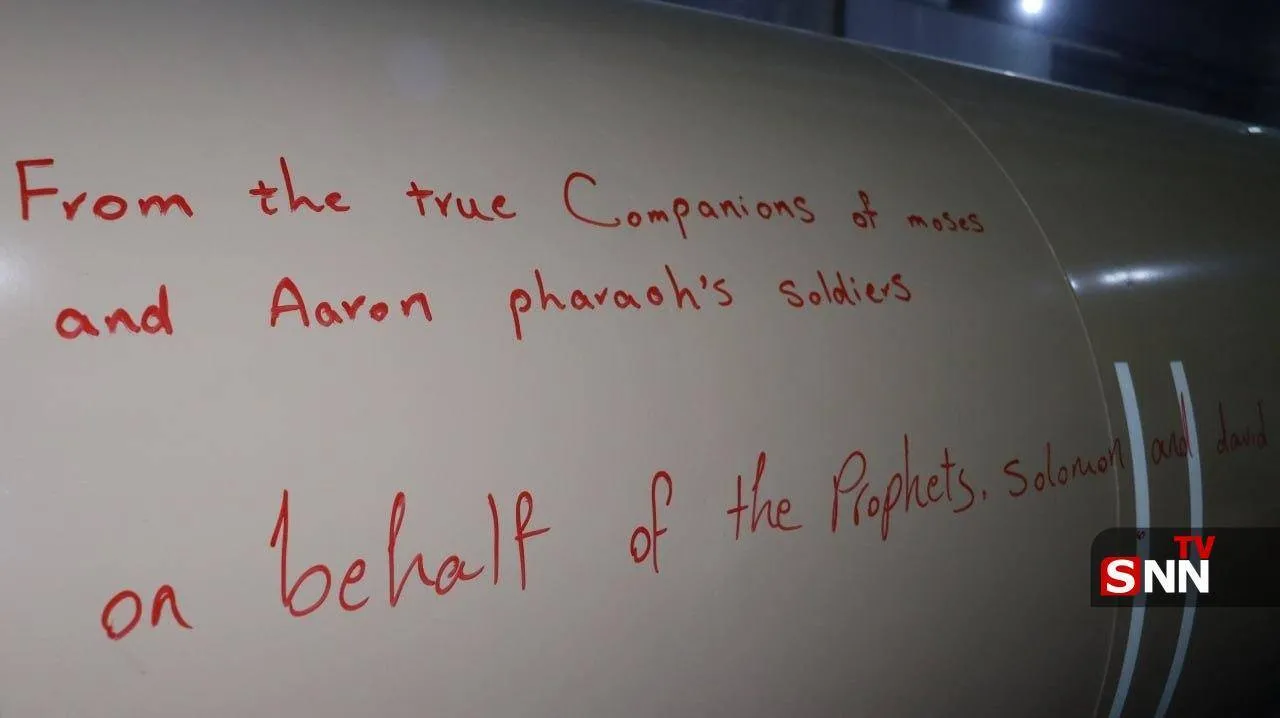 From the true Companions of moses
and Aaron pharaoh's soldiers
on behalf of the Prophets. Solomon and david
SNN TV